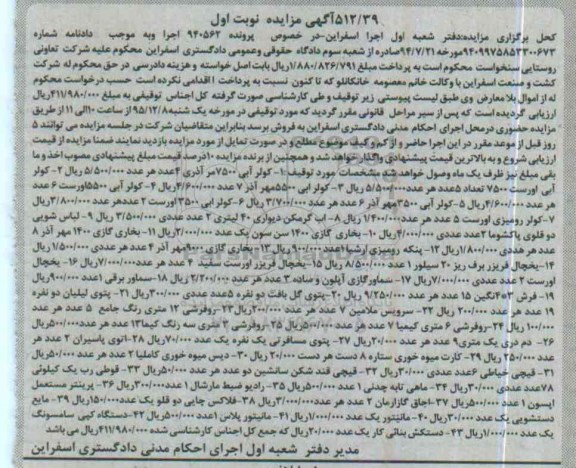 ۵۱۲/۳۹آگهی مزایده نوبت اول
محل برگزاری مزایده:دفتر شعبه اول اجرا اسفراین-در خصوص پرونده ۹۴۰۵۶۲ اجرا وبه موجب دادنامه شماره
۹۴۰۹۹۷۵۸۵۳۳۰۰۶۷۳مورخه ۹۴/۷/۲۱صادره از شعبه سوم دادگاه حقوقی وعمومی دادگستری اسفراین محکوم علیه شرکت تعاونی
روستایی سنخواست محکوم است به پرداخت مبلغ ۱/۸۸۰/۸۲۶/۷۹۱ریال بابت اصل خواسته و هزینه دادرسی در حق محکوم له شرکت
کشت و صنعت اسفراین با وکالت خانم معصومه خانکانلو که تا کنون نسبت به پرداخت اقدامی نکرده است حسب درخواست محکوم
له از اموال بلا معارض وی طبق لیست پیوستی زیر توقیف و طی کارشناسی صورت گرفته کل اجناس توقیفی به مبلغ ۴۱۱/۹۸۰/۰۰۰ریال
ارزیابی گردیده است که پس از سیر مراحل قانونی مقرر گردید که مورد توقیفی در مورخه یک شنبه۹۵/۱۲/۸ از ساعت ۱۰الی ۱۱ از طریق
مزایده حضوری درمحل اجرای احکام مدنی دادگستری اسفراین به فروش برسد بنابراین متقاضیان شرکت در جلسه مزایده می توانند ۵
روز قبل از موعد مقرر در این اجرا حاضر و از کم و کیف موضوع مطلع و در صورت تمایل از مورد مزایده بازدید نمایند ضمنا مزایده از قیمت
ارزیابی شروع و به بالاترین قیمت پیشنهادی واگذار خواهد شد و همچنین از برنده مزایده ۱۰درصد قیمت مبلغ پیشنهادی مصوب اخذ و ما
بقی مبلغ نیز ظرف یک ماه وصول خواهد شد مشخصات مورد توقیف:۱-کولر آبی ۷۵۰۰مهر آذری ۴عدد هر عدد۵/۵۰۰/۰۰۰ ریال ۲-کولر
آبی اورست ۷۵۰۰ تعداد ۵عدد هر عدد۵/۵۰۰/۰۰۰ریال ۳-کولر ابی ۵۵۰۰مهر آذر ۷ عدد ۴/۶۰۰/۰۰۰ریال ۴-کولر آبی ۵۵۰۰اورست ۶ عدد
هر عدد ۴/۶۰۰/۰۰۰ریال ۵-کولر آبی ۳۵۰۰مهر آذر ۶ عدد هر عدد ۳/۷۰۰/۰۰۰ ریال ۶-کولر ابی ۳۵۰۰ اورست ۲ عددهر عدد۳/۸۰۰/۰۰۰ریال
۷-کولر رومیزی اورست ۵ عدد هر عدد۱/۴۰۰/۰۰۰ریال ۸-آب گرمکن دیواری ۴۰ لیتری ۲ عدد عددی ۳/۵۰۰/۰۰۰ ریال ۹-لباس شویی
دو قلوی پاکشوما ۲عدد عددی ۴/۰۰۰/۰۰۰ریال ۱۰-بخاری گازی ۱۴۰۰ سن سون یک عدد ۲/۰۰۰/۰۰۰ریال ۱۱-بخاری گازی ۱۴۰۰ مهر آذر ۸
عدد هر عددی ۱/۸۰۰/۰۰۰ریال ۱۲-پنکه رومیزی ارشیا ۱عدد ۹۰۰/۰۰۰ریال ۱۳-بخاری گازی ۹۰۰۰مهر آذر ۴ عدد هر عددی ۱/۵۰۰/۰۰۰ ریال
۱۴-یخچال فریزر برف ریز ۲۰ سیلور ۱ عدد ۸/۵۰۰/۰۰۰ ریال ۱۵-یخچال فریزر اورست سفید ۴ عدد هر عدد۷/۰۰۰/۰۰۰ریال ۱۶-یخچال
اورست ۲ عدد عددی ۷/۰۰۰/۰۰۰ریال ۱۷-سماورگازی آپلون و ساده ۳ عدد هر عدد ۲/۲۰۰/۰۰۰ ریال ۱۸-سماور برقی ۱عدد ۹۰۰/۰۰۰ریال
۱۹-فرش ۴۰۳نگین ۱۵ عدد هر عدد ۹/۲۵۰/۰۰۰ ریال ۲۰-پتوی گل بافت دو نفره ۵عدد عددی ۳۰۰/۰۰۰ریال ۲۱-پتوی لیلیان دو نفره
۱۹ عدد هر عدد ۲۰۰/۰۰۰ ریال ۲۲-سرویس ملامین ۷ عدد هر عدد ۲۰۰/۰۰۰ریال۲۳-روفرشی ۱۲ متری رنگ جامع ۵ عدد هر عدد
۱۰۰/۰۰۰ ریال ۲۴-روفرشی ۶ متری کیمیا ۷ عدد هر عدد ۵۰/۰۰۰ ریال ۲۵-روفرشی ۳ متری سه رنگ کیما۱۳ عدد هر عدد۵۰/۰۰۰ریال
۲۶-دم دری یک متری۹ عدد هر عدد ۲۰/۰۰۰ریال ۲۷-پتوی مسافرتی یک نفره یک عدد ۷۰/۰۰۰ریال ۲۸-اتوی پاسیران ۲ عدد هر
عدد ۲۵۰/۰۰۰ ریال ۲۹-کارت میوه خوری ستاره ۸ دست هر دست ۲۰/۰۰۰ ریال ۳۰-دیس میوه خوری کاملیا ۲ عدد هر عدد ۵۰/۰۰۰ریال
۳۱-قیچی خیاطی ۶عدد عددی ۳۰/۰۰۰ریال ۳۲-قیچی قند شکن سانشین دو عدد هر عدد ۵۰/۰۰۰ریال ۳۳-قوطی رب یک کیلوئی
۷۸عدد عددی ۳۰/۰۰۰ریال ۳۴-ماهی تابه چدنی ۱ عدد ۵۰۰/۰۰۰ریال ۳۵-رادیو ضبط مارشال ۱ عدد۳۰۰/۰۰۰ریال ۳۶-پرینتر مستعمل
اپسون ۱ عدد ۵۰۰/۰۰۰ریال ۳۷-اجاق گازارمان ۲ عدد هر عدد۳/۰۰۰/۰۰۰ریال ۳۸-فلاکس چایی دو قلو یک عدد۱۵۰/۰۰۰ریال ۳۹-مایع
دستشویی یک عدد ۳۰/۰۰۰ریال ۴۰-مانیتور یک عدد ۱/۰۰۰/۰۰۰ریال ۴۱-مانیتور پلاس ۱عدد ۵۰۰/۰۰۰ریال ۴۲-دستگاه کپی سامسونگ
یک عدد ۱/۰۰۰/۰۰۰ریال ۴۳-دستکش بنائی کار یک عدد ۲۰/۰۰۰ریال که جمع کل اجناس کارشناسی شده ۴۱۱/۹۸۰/۰۰۰ریال می باشد
مدیر دفتر شعبه اول اجرای احکام مدنی دادگستری اسفراین